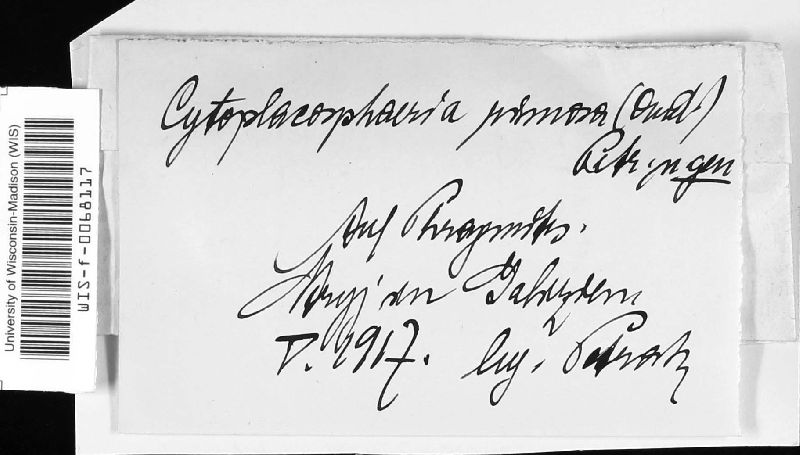 Cytoplacosphaeria rimosa (Oud.)
Petr. n. gen
Auf Phragmites.
in Galizien
V. 1917. leg. Petrak
University of Wisconsin-Madison (WIS)
WIS-f-0068117